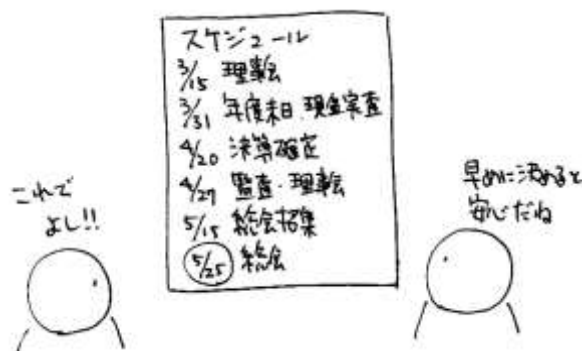 スケジュール
3/15 理事会
3/31 年度末日 現金実査
4/20 決算確定
4/27 監査・理事会
5/15 総会招集
5/25 総会
これで
よし!!
早めに決めると
安心だね